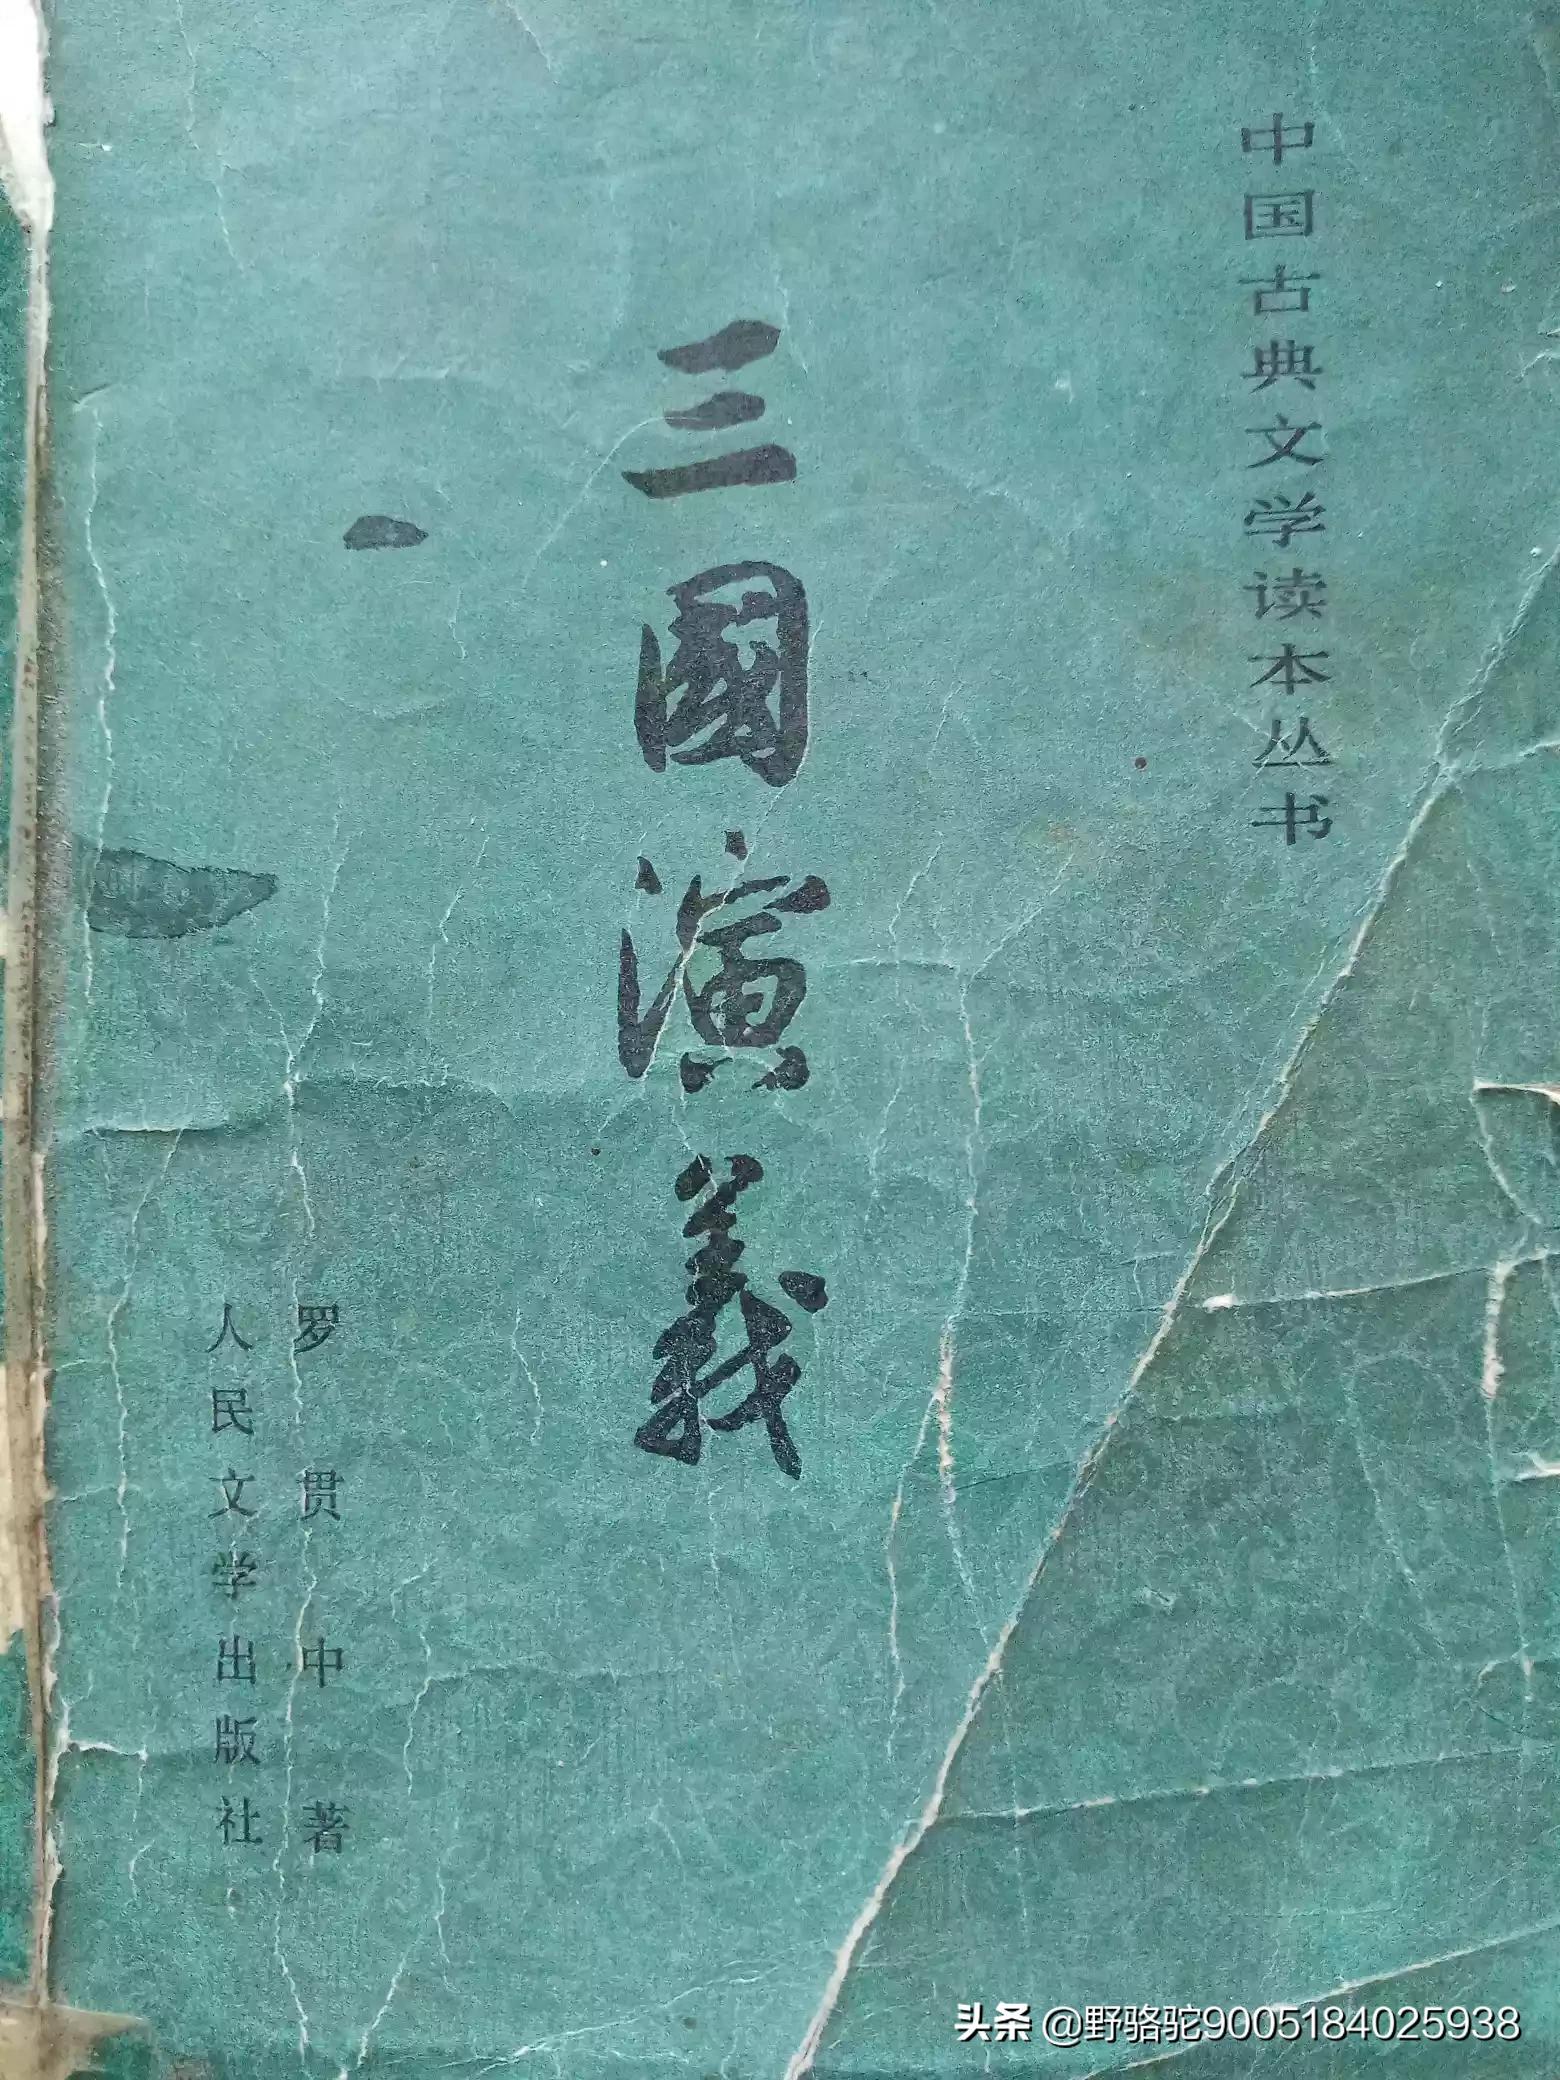 中国古典文学读本丛书
三國演義
罗贯中著
人民文学出版社
头条 @野骆驼9005184025938